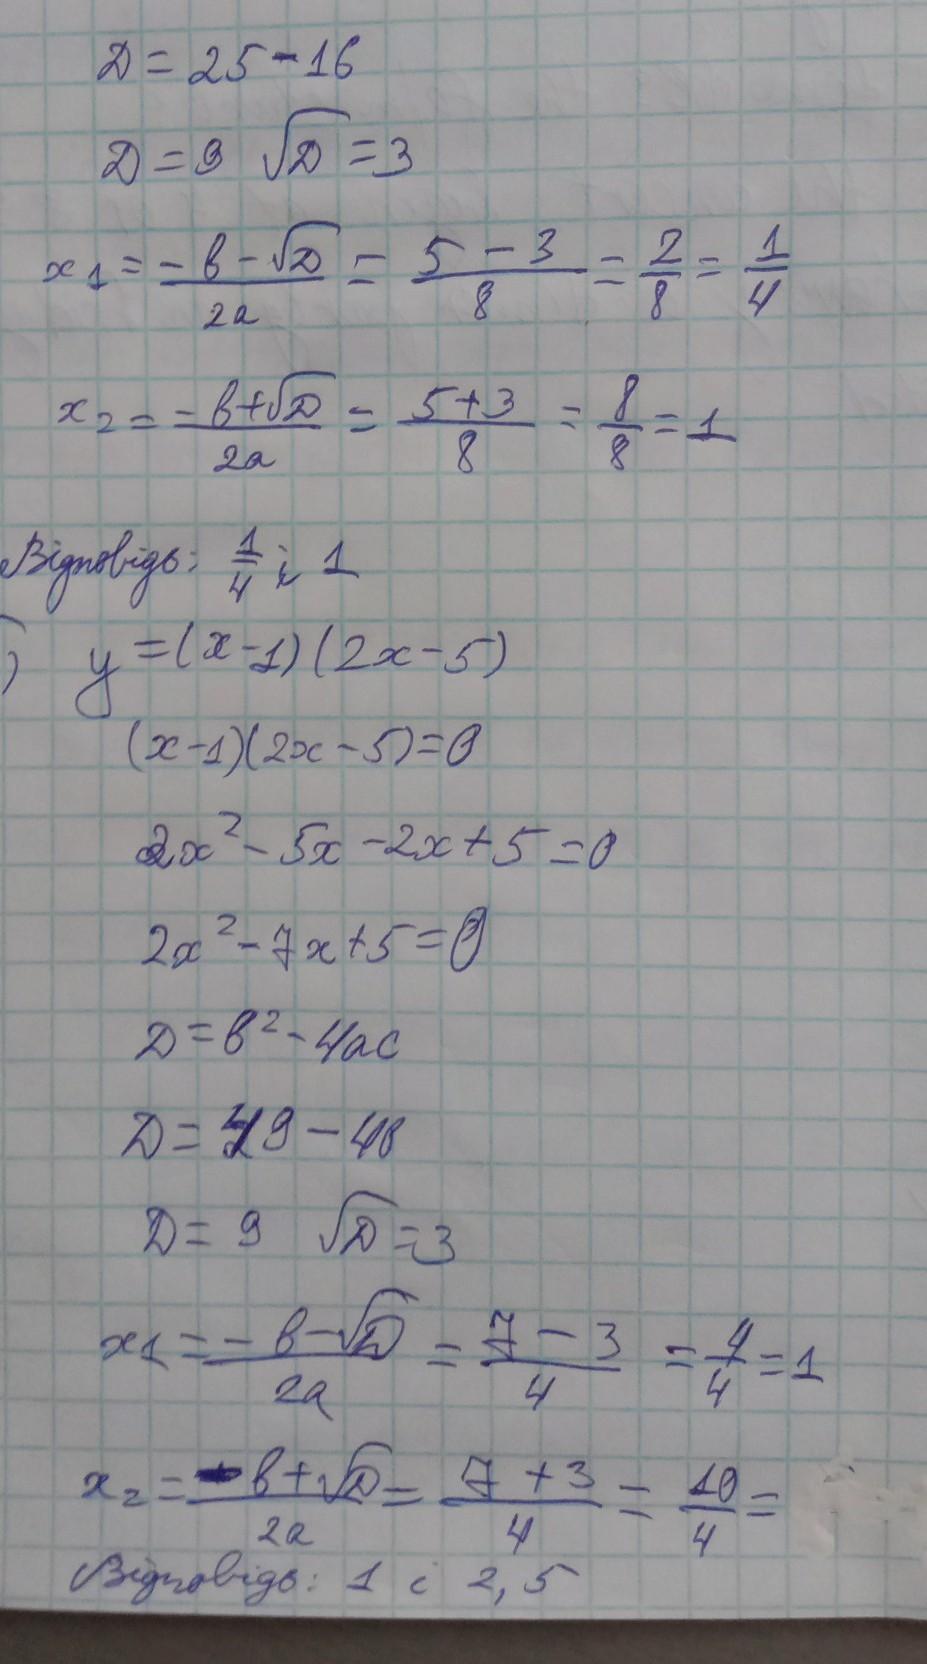 D = 25 - 16
D = 9 √D = 3
x₁ = (-b - √D)/2a = (5 - 3)/8 = 2/8 = 1/4
x₂ = (-b + √D)/2a = (5 + 3)/8 = 8/8 = 1
Відповідь: 1/4 ; 1
) y = (x - 1)(2x - 5)
(x - 1)(2x - 5) = 0
2x² - 5x - 2x + 5 = 0
2x² - 7x + 5 = 0
D = b² - 4ac
D = 49 - 40
D = 9 √D = 3
x₁ = (-b - √D)/2a = (7 - 3)/4 = 4/4 = 1
x₂ = (-b + √D)/2a = (7 + 3)/4 = 10/4 =
Відповідь: 1 і 2,5